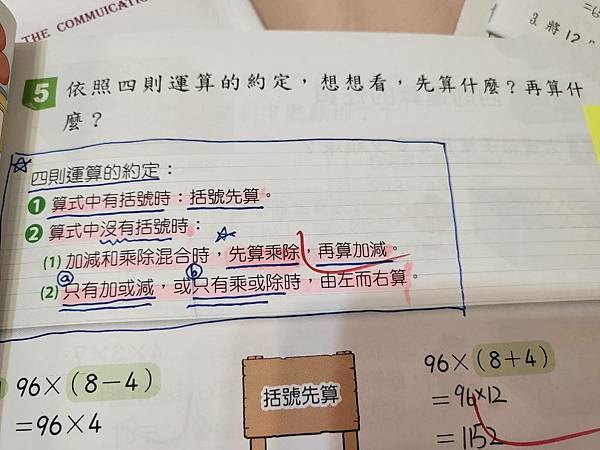 THE COMMUICATION
3. 將 12
5 依照四則運算的約定，想想看，先算什麼？再算什
麼？
四則運算的約定：
❶ 算式中有括號時：括號先算。
❷ 算式中沒有括號時：
(1) 加減和乘除混合時，先算乘除，再算加減。
ⓐ ⓑ
(2) 只有加或減，或只有乘或除時，由左而右算
96×(8－4)
＝96×4
括號先算
96×(8＋4)
＝96×12
＝1152